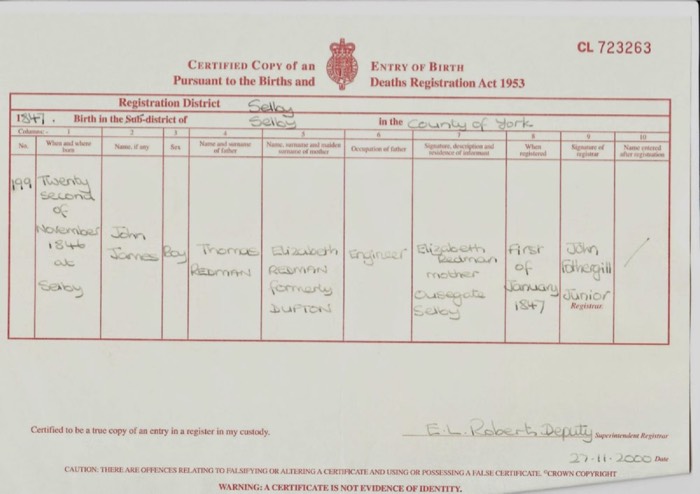 CL 723263
CERTIFIED COPY of an ENTRY OF BIRTH
Pursuant to the Births and Deaths Registration Act 1953
Registration District Selby
1847. Birth in the Sub-district of Selby in the County of York
Columns:- 1 2 3 4 5 6 7 8 9 10
No. When and where born Name, if any Sex Name and surname of father Name, surname and maiden surname of mother Occupation of father Signature, description and residence of informant When registered Signature of registrar Name entered after registration
199 Twenty second of November 1846 at Selby John James Boy Thomas REDMAN Elizabeth REDMAN formerly DUFTON Engineer Elizabeth Redman mother Ousegate Selby First of January 1847 John Fothergill Junior Registrar
Certified to be a true copy of an entry in a register in my custody.
E.L. Roberts Deputy Superintendent Registrar
27-11-2000 Date
CAUTION: THERE ARE OFFENCES RELATING TO FALSIFYING OR ALTERING A CERTIFICATE AND USING OR POSSESSING A FALSE CERTIFICATE. ©CROWN COPYRIGHT
WARNING: A CERTIFICATE IS NOT EVIDENCE OF IDENTITY.